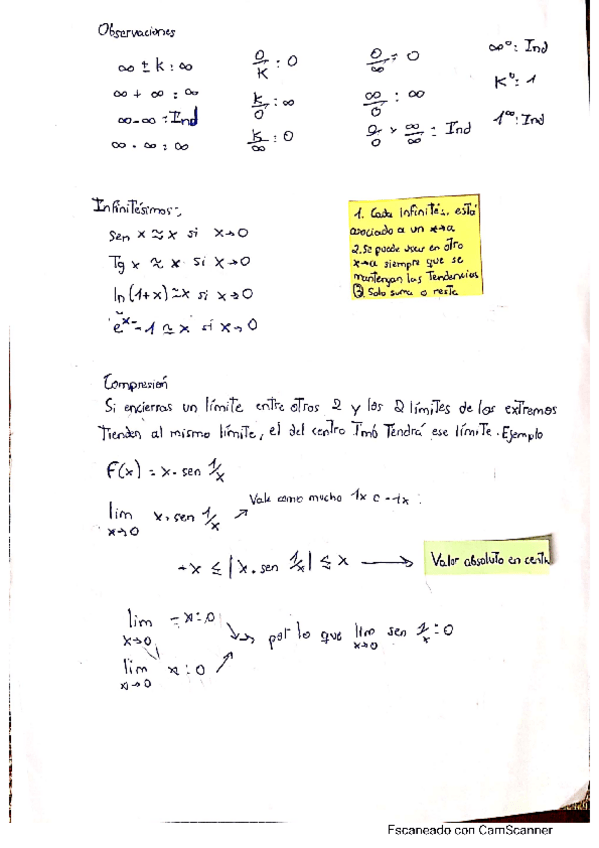 Observaciones
∞ ± k : ∞
∞ + ∞ : ∞
∞ - ∞ : Ind
∞ · ∞ : ∞
0/K : 0
k/0 : ∞
k/∞ : 0
0/∞ = 0
∞/0 : ∞
0/0 y ∞/∞ = Ind
∞⁰ : Ind
K⁰ : 1
1^∞ : Ind
Infinitésimos:
Sen x ≈ x si x→0
Tg x ≈ x si x→0
ln(1+x) ≈ x si x→0
e^x - 1 ≈ x si x→0
1. Cada infinités. está
asociado a un x→a
2. Se puede usar en otro
x→a siempre que se
mantengan las Tendencias
③. Solo suma o resta
Compresión
Si encierras un límite entre otros 2 y los 2 límites de los extremos
Tienden al mismo límite, el del centro Tmb Tendrá ese límite. Ejemplo
F(x) = x · sen 1/x
lim x→0 x · sen 1/x ↗ Vale como mucho 1x o -1x :
-x ≤ |x · sen 1/x| ≤ x → Valor absoluto en
lim x→0 -x : 0
lim x→0 x : 0
por lo que lim x→0 sen 1/x : 0
Escaneado con CamScanner